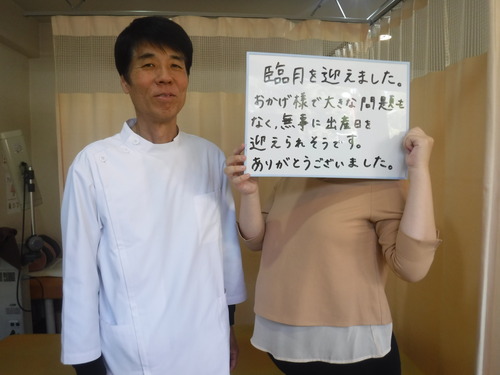 臨月を迎えました。
おかげ様で大きな問題も
なく、無事に出産日を
迎えられそうです。
ありがとうございました。